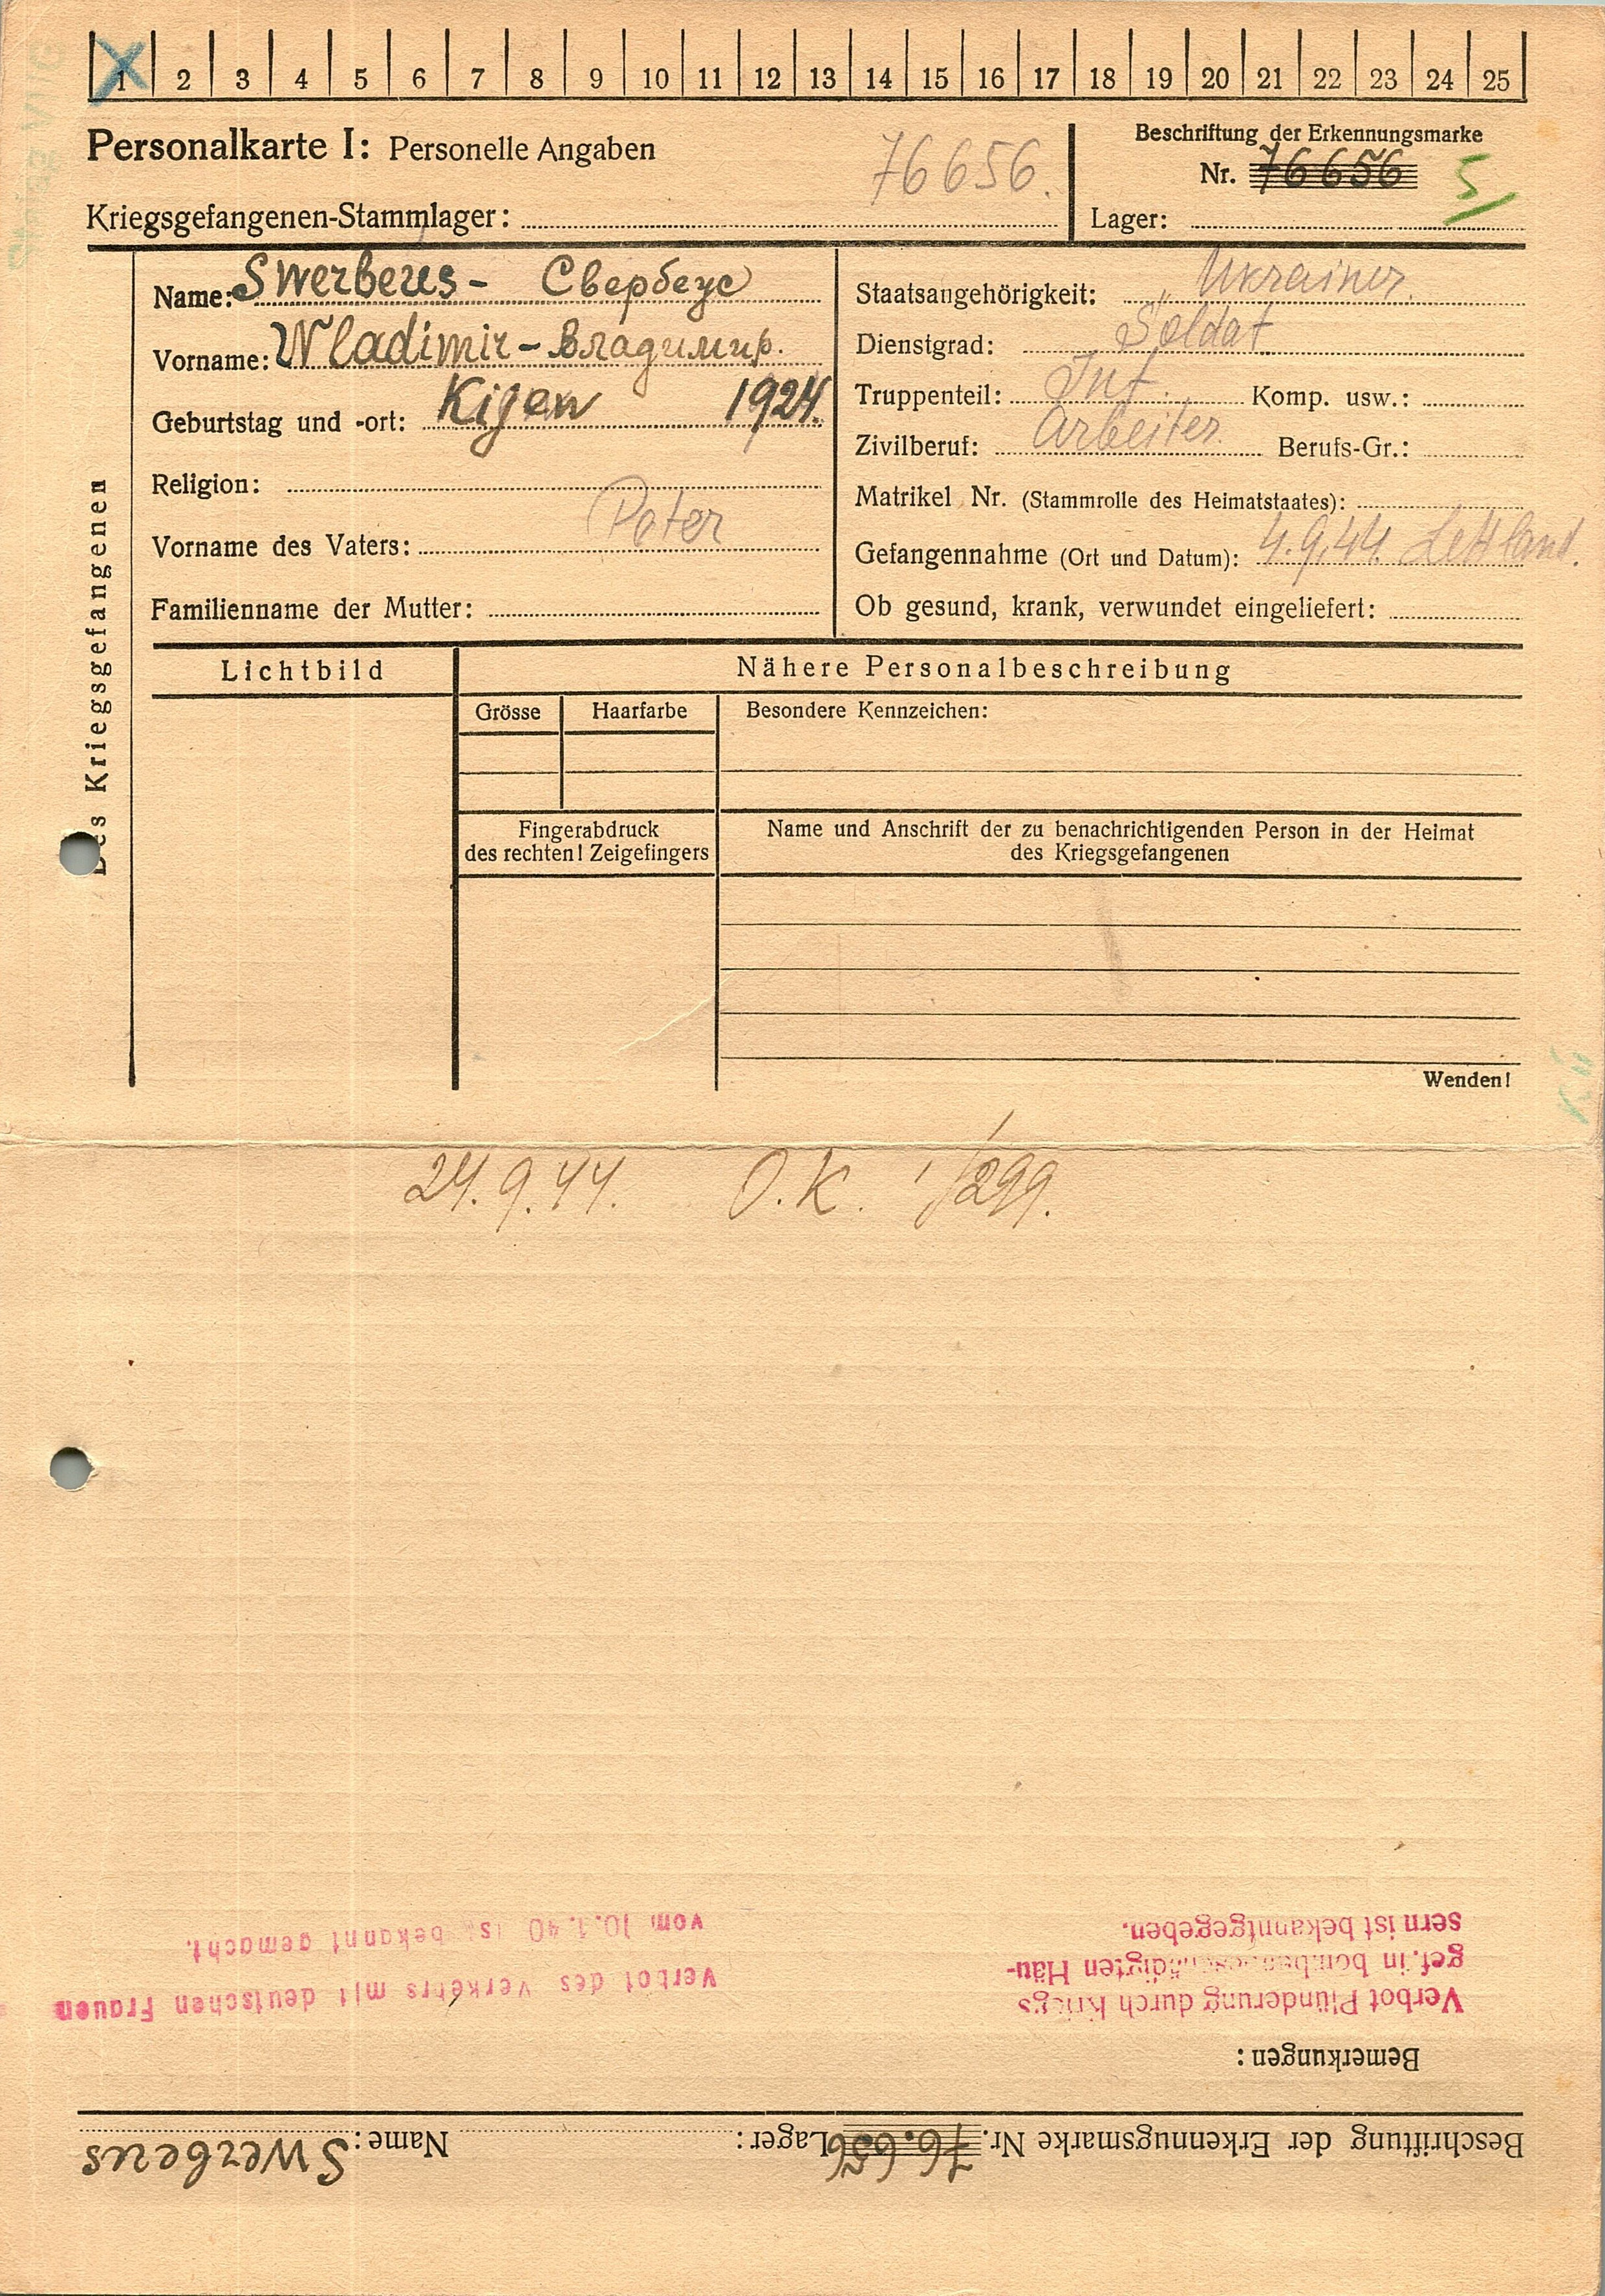 1 2 3 4 5 6 7 8 9 10 11 12 13 14 15 16 17 18 19 20 21 22 23 24 25
Personalkarte I: Personelle Angaben
76656.
Kriegsgefangenen-Stammlager:
Beschriftung der Erkennungsmarke
Nr. 76656
5
Lager:
Des Kriegsgefangenen
Name: Swerbeus - Свербеус
Vorname: Wladimir - Владимир.
Geburtstag und -ort: Kijew 1924.
Religion:
Vorname des Vaters: Peter
Familienname der Mutter:
Staatsangehörigkeit: Ukrainer.
Dienstgrad: Soldat
Truppenteil: Inf. Komp. usw.:
Zivilberuf: Arbeiter. Berufs-Gr.:
Matrikel Nr. (Stammrolle des Heimatstaates):
Gefangennahme (Ort und Datum): 4.9.44. Lettland.
Ob gesund, krank, verwundet eingeliefert:
Lichtbild
Nähere Personalbeschreibung
Grösse Haarfarbe Besondere Kennzeichen:
Fingerabdruck
des rechten! Zeigefingers
Name und Anschrift der zu benachrichtigenden Person in der Heimat
des Kriegsgefangenen
Wenden!
24.9.44. O.K. 1/299.
Beschriftung der Erkennugsmarke Nr. 76.656 Lager: Name: Swerbeus
Bemerkungen:
Verbot Plünderung durch Kriegs
gef. in bombengeschädigten Häu-
sern ist bekanntgegeben.
Verbot des Verkehrs mit deutschen Frauen
vom 10.1.40 ist bekannt gemacht.